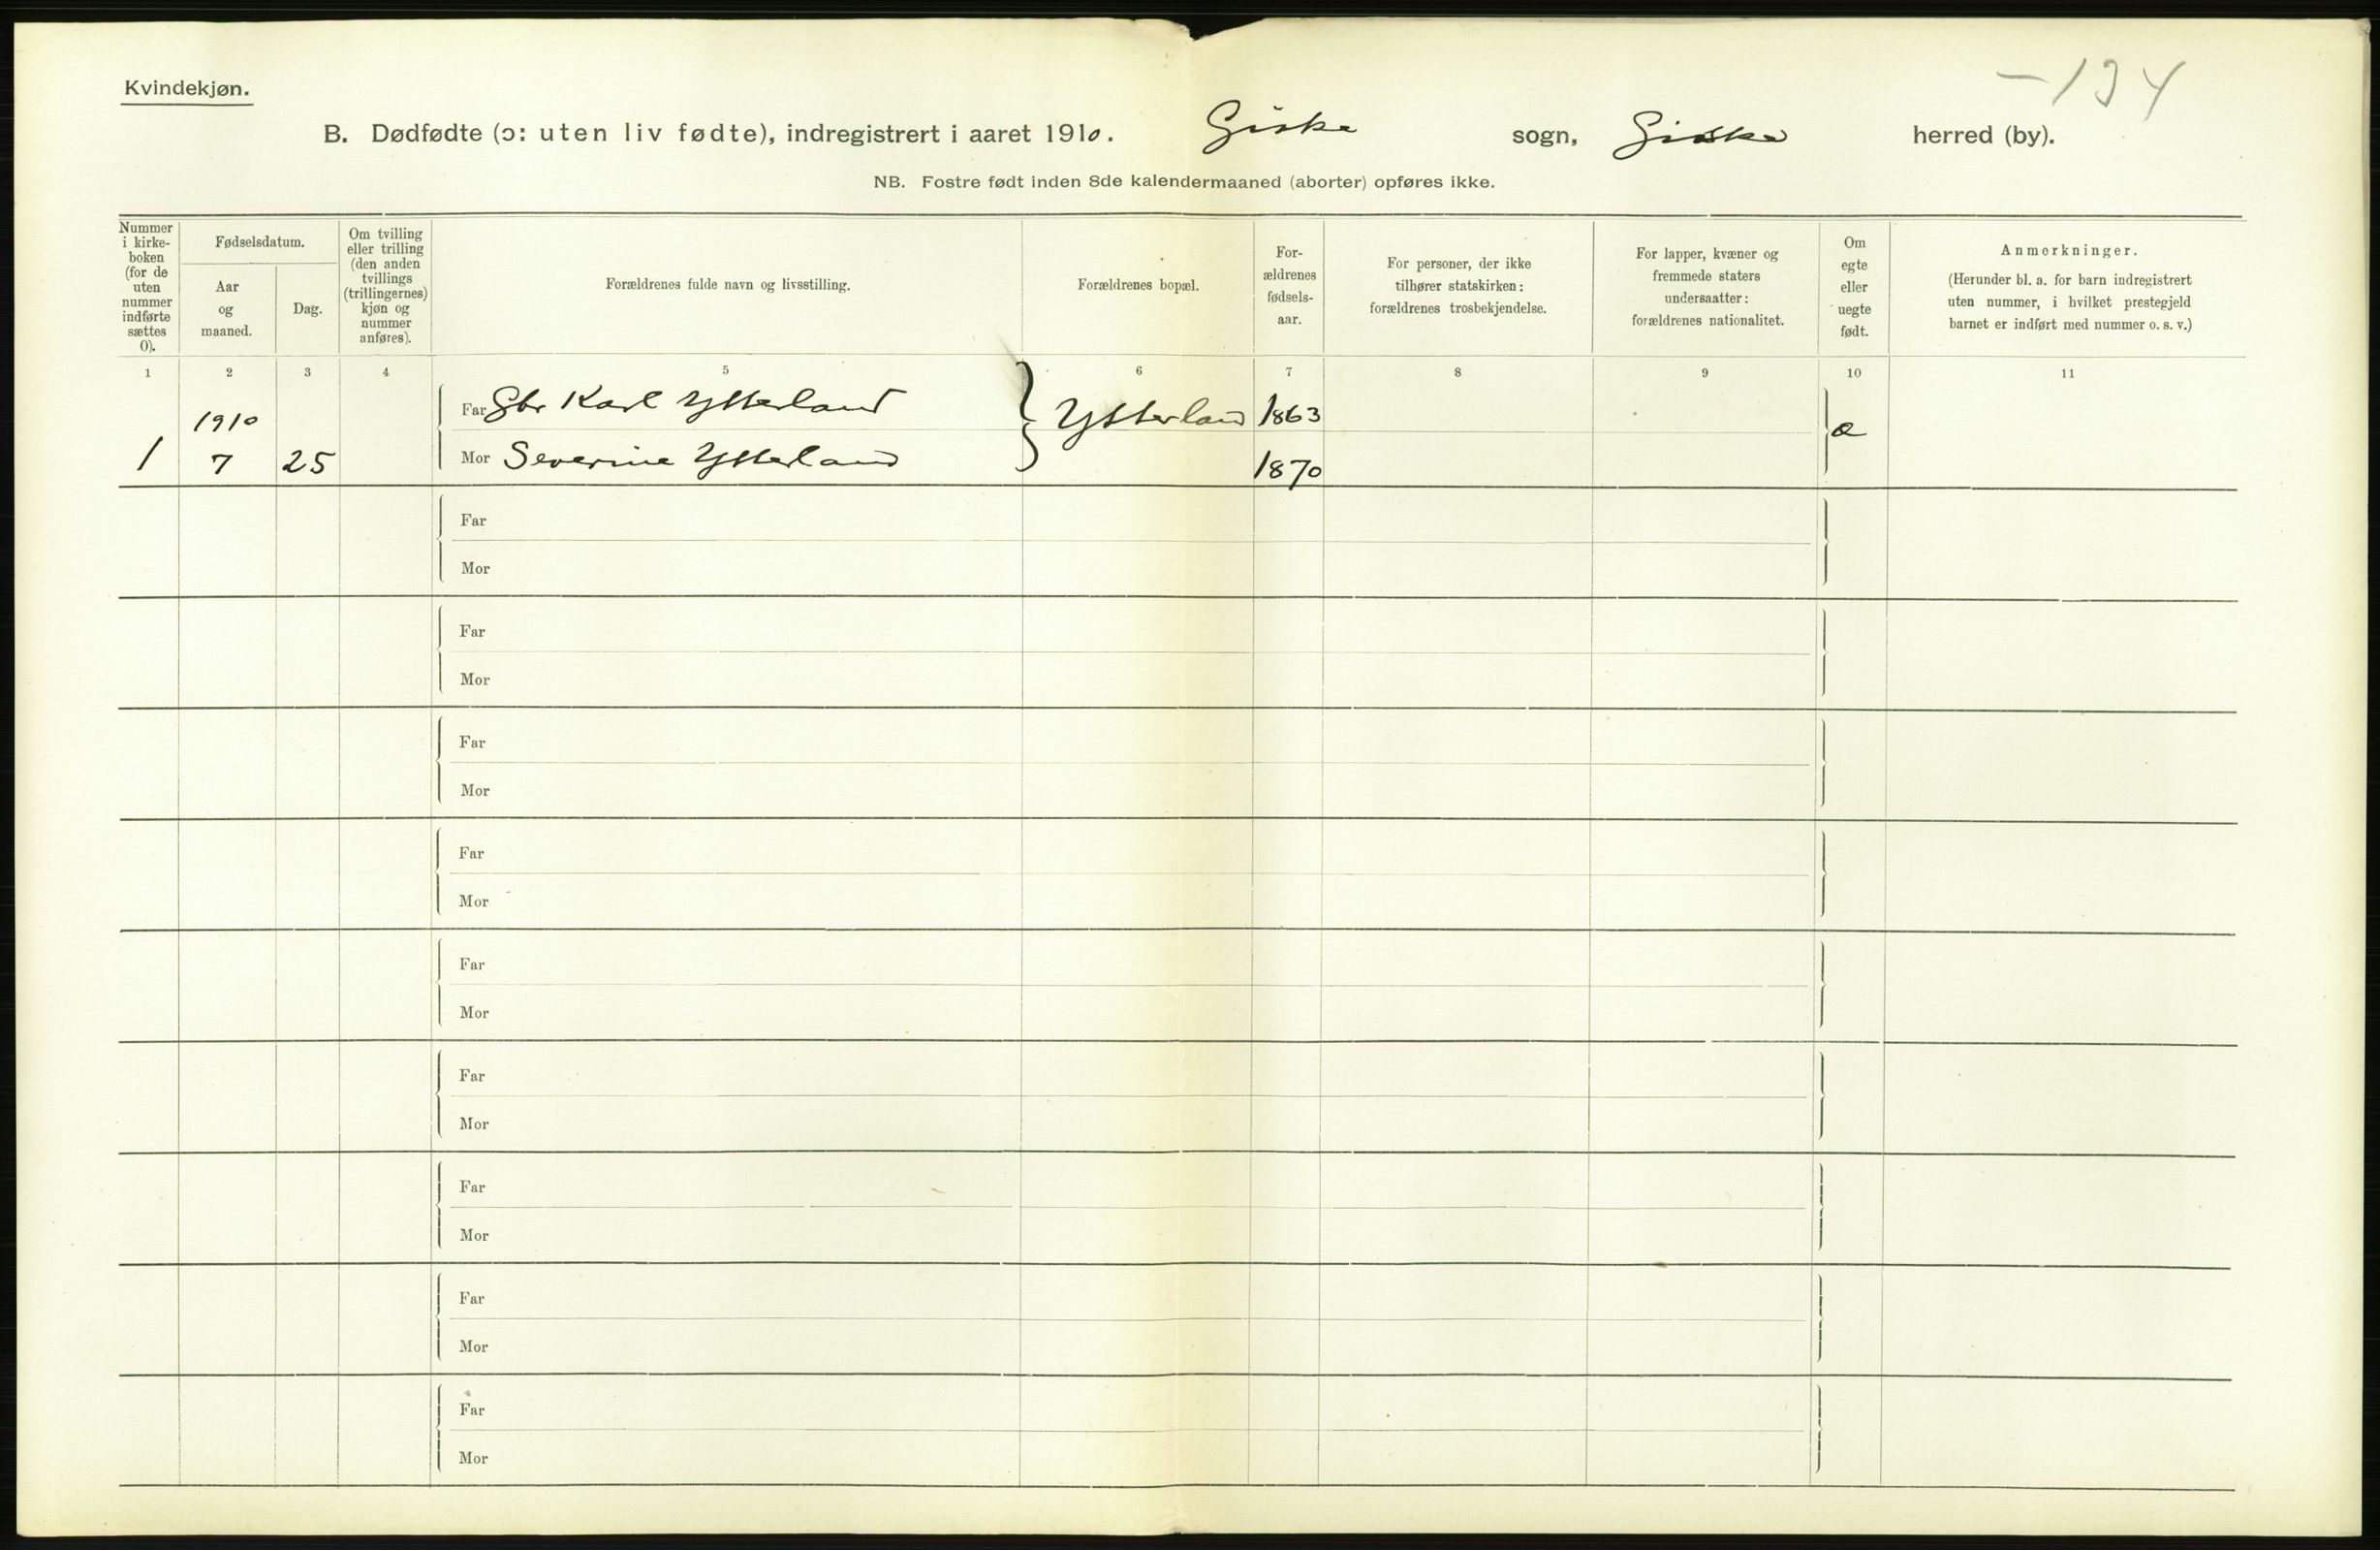 -134
Kvindekjøn.
B. Dødfødte (ɔ: uten liv fødte), indregistrert i aaret 1910. Giske sogn, Giske herred (by).
NB. Fostre født inden 8de kalendermaaned (aborter) opføres ikke.
Nummer
i kirke-
boken
(for de
uten
nummer
indførte
sættes
0).
Fødselsdatum.
Aar
og
maaned.
Dag.
Om tvilling
eller trilling
(den anden
tvillings
(trillingernes)
kjøn og
nummer
anføres).
Forældrenes fulde navn og livsstilling.
Forældrenes bopæl.
For-
ældrenes
fødsels-
aar.
For personer, der ikke
tilhører statskirken:
forældrenes trosbekjendelse.
For lapper, kvæner og
fremmede staters
undersaatter:
forældrenes nationalitet.
Om
egte
eller
uegte
født.
Anmerkninger.
(Herunder bl. a. for barn indregistrert
uten nummer, i hvilket prestegjeld
barnet er indført med nummer o. s. v.)
1 2 3 4 5 6 7 8 9 10 11
1910 Far Gbr Karl Ytterland Ytterland 1863 æ
1 7 25 Mor Severine Ytterland 1870
Far
Mor
Far
Mor
Far
Mor
Far
Mor
Far
Mor
Far
Mor
Far
Mor
Far
Mor
Far
Mor